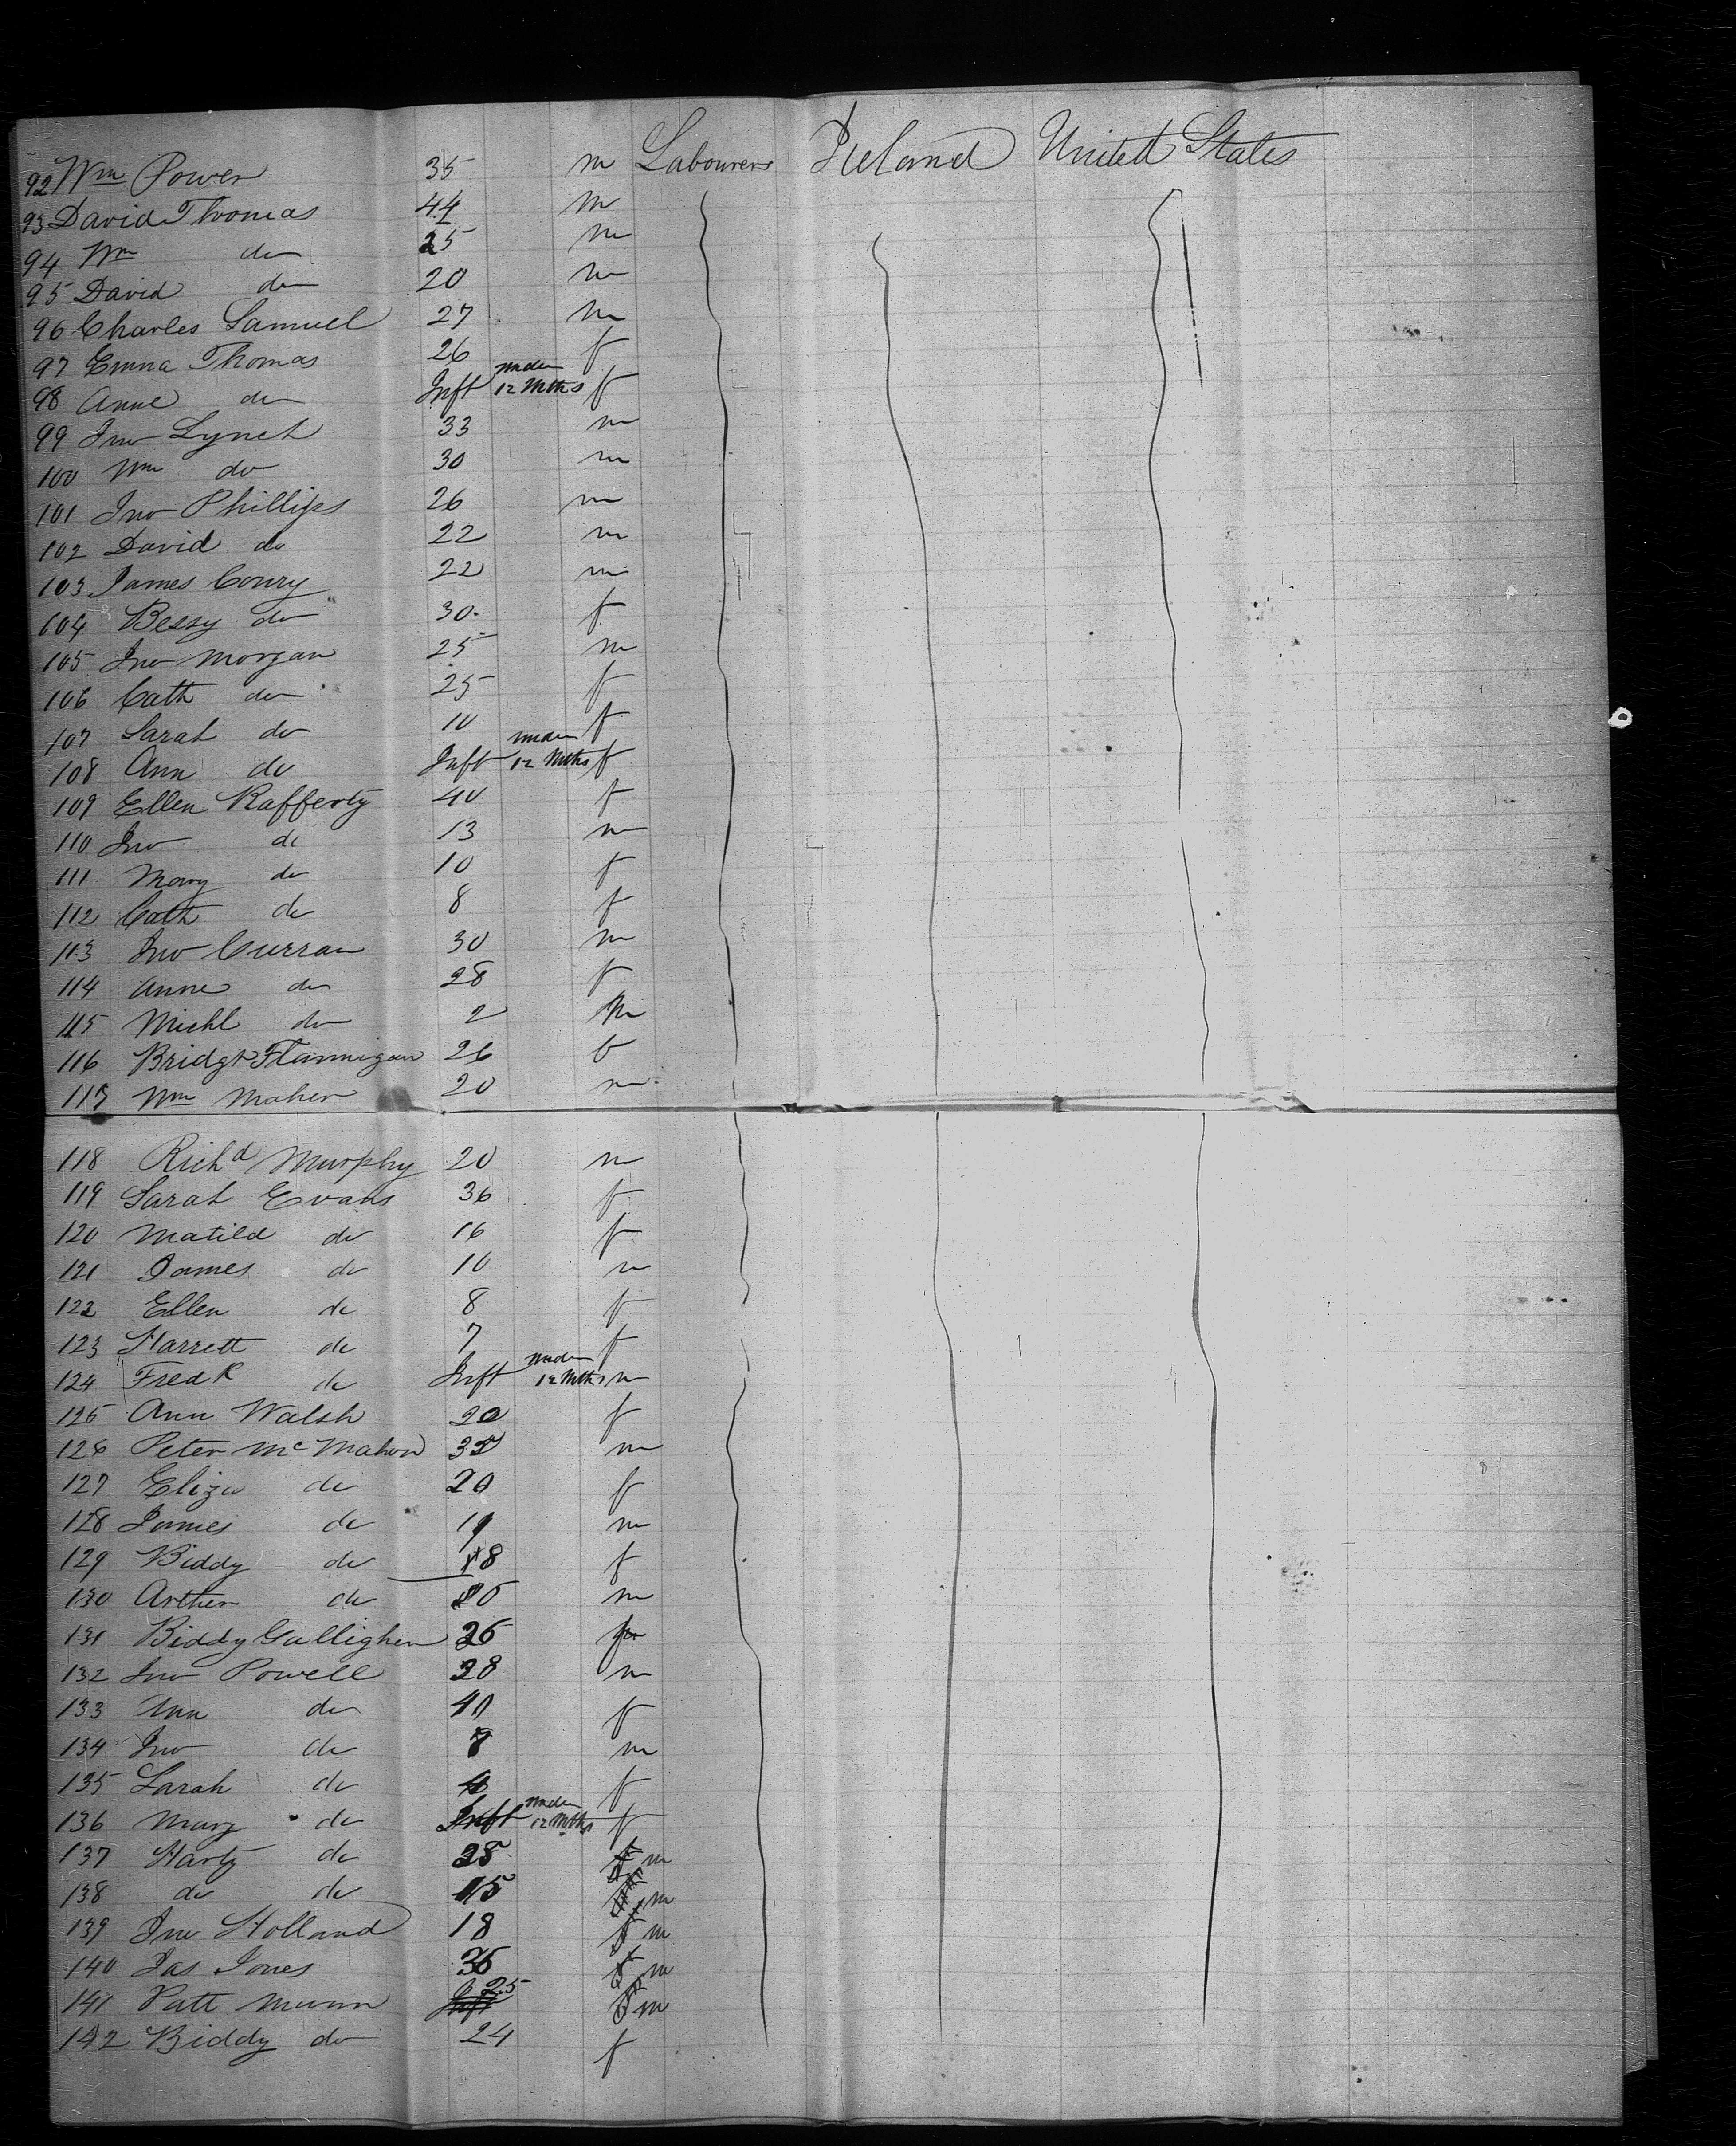 92 Wm Power 35 m Labourers Ireland United States
93 David Thomas 44 m
94 Wm do 25 m
95 David do 20 m
96 Charles Samuel 27 m
97 Emma Thomas 26 f
98 Anne do Inft under 12 Mths f
99 Jno Lynch 33 m
100 Wm do 30 m
101 Jno Phillips 26 m
102 David do 22 m
103 James Conry 22 m
104 Bessy do 30 f
105 Jno Morgan 25 m
106 Cath do 25 f
107 Sarah do 10 f
108 Ann do Inft under 12 Mths f
109 Ellen Rafferty 40 f
110 Jno do 13 m
111 Mary do 10 f
112 Cath do 8 f
113 Jno Curran 30 m
114 Anne do 28 f
115 Michl do 2 m
116 Bridgt Flannigan 26 f
117 Wm Maher 20 m
118 Richd Murphy 20 m
119 Sarah Evans 36 f
120 Matild do 16 f
121 James do 10 m
122 Ellen do 8 f
123 Harrett do 7 f
124 Fredk do Inft under 12 Mths m
125 Ann Walsh 20 f
126 Peter McMahon 35 m
127 Eliza do 20 f
128 James do 19 m
129 Biddy do 18 f
130 Arther do m
131 Biddy Gallighen 26 f
132 Jno Powell 28 m
133 Ann do 40 f
134 Jno do 8 m
135 Sarah do 4 f
136 Mary do Inft under 12 Mths f
137 Harty do 28 m
138 do do 15 m
139 Jno Holland 18 m
140 Jas Jones 36 m
141 Patt Munn 25 m
142 Biddy do 24 f